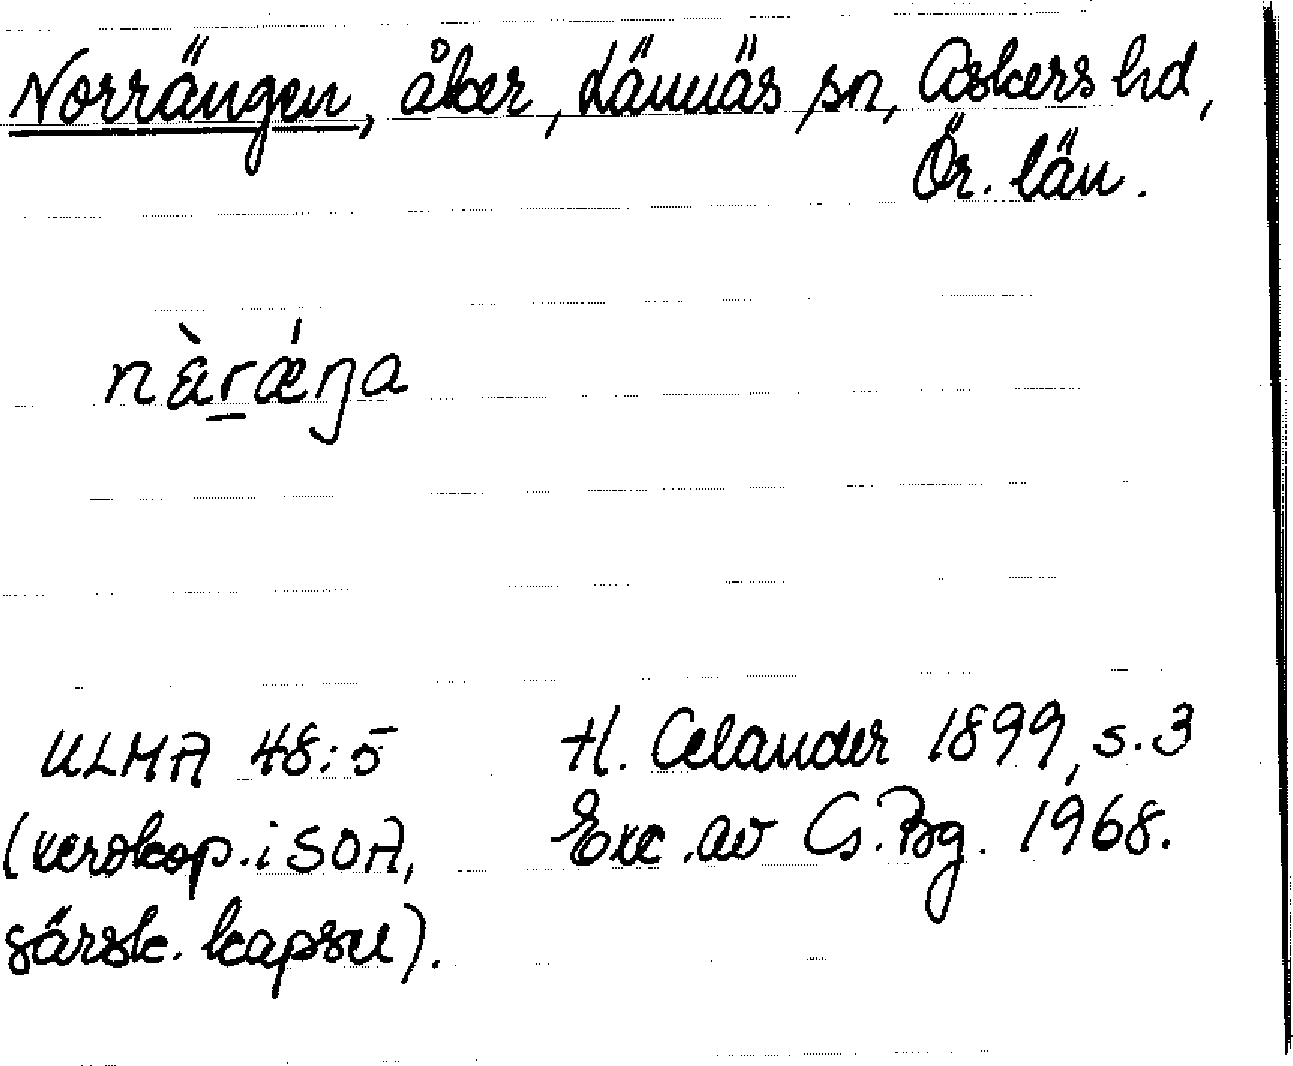 Norrängen, åker, Lännäs sn, Askers hd,
Ör. län.
nàrǽŋa
ULMA 48:5
H. Celander 1899, s. 3
(xerokop. i SOA,
Exc. av G. Bg. 1968.
särsk. kapsel).